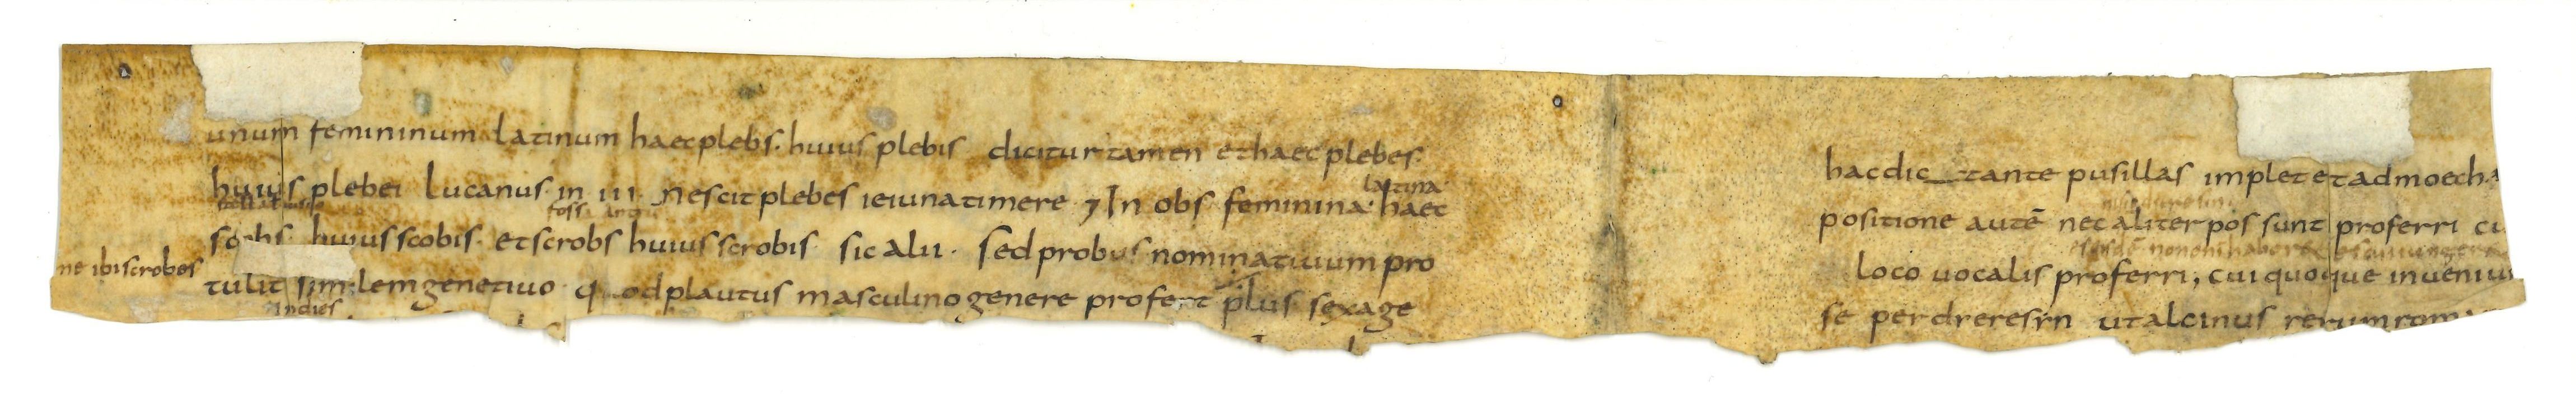 unum femininum latinum haec plebs. huius plebis dicitur tamen et haec plebes.
huius plebei lucanus in III nescit plebes ieiuna timere ⁊ In obs feminina haec
latina
scobs huius scobis et scrobs huius scrobis sic alii. sed probus nominatiuum pro
ne ibi scrobes
tulit similem genetiuo quod plautus masculino genere profert plus sexage
indies
hac dic tante pusillas implet et ad moecha
positione autē nec aliter possunt proferri cu
loco uocalis proferri, cui quoque inueniu
se perdreresrn ut alcinus rerum roma